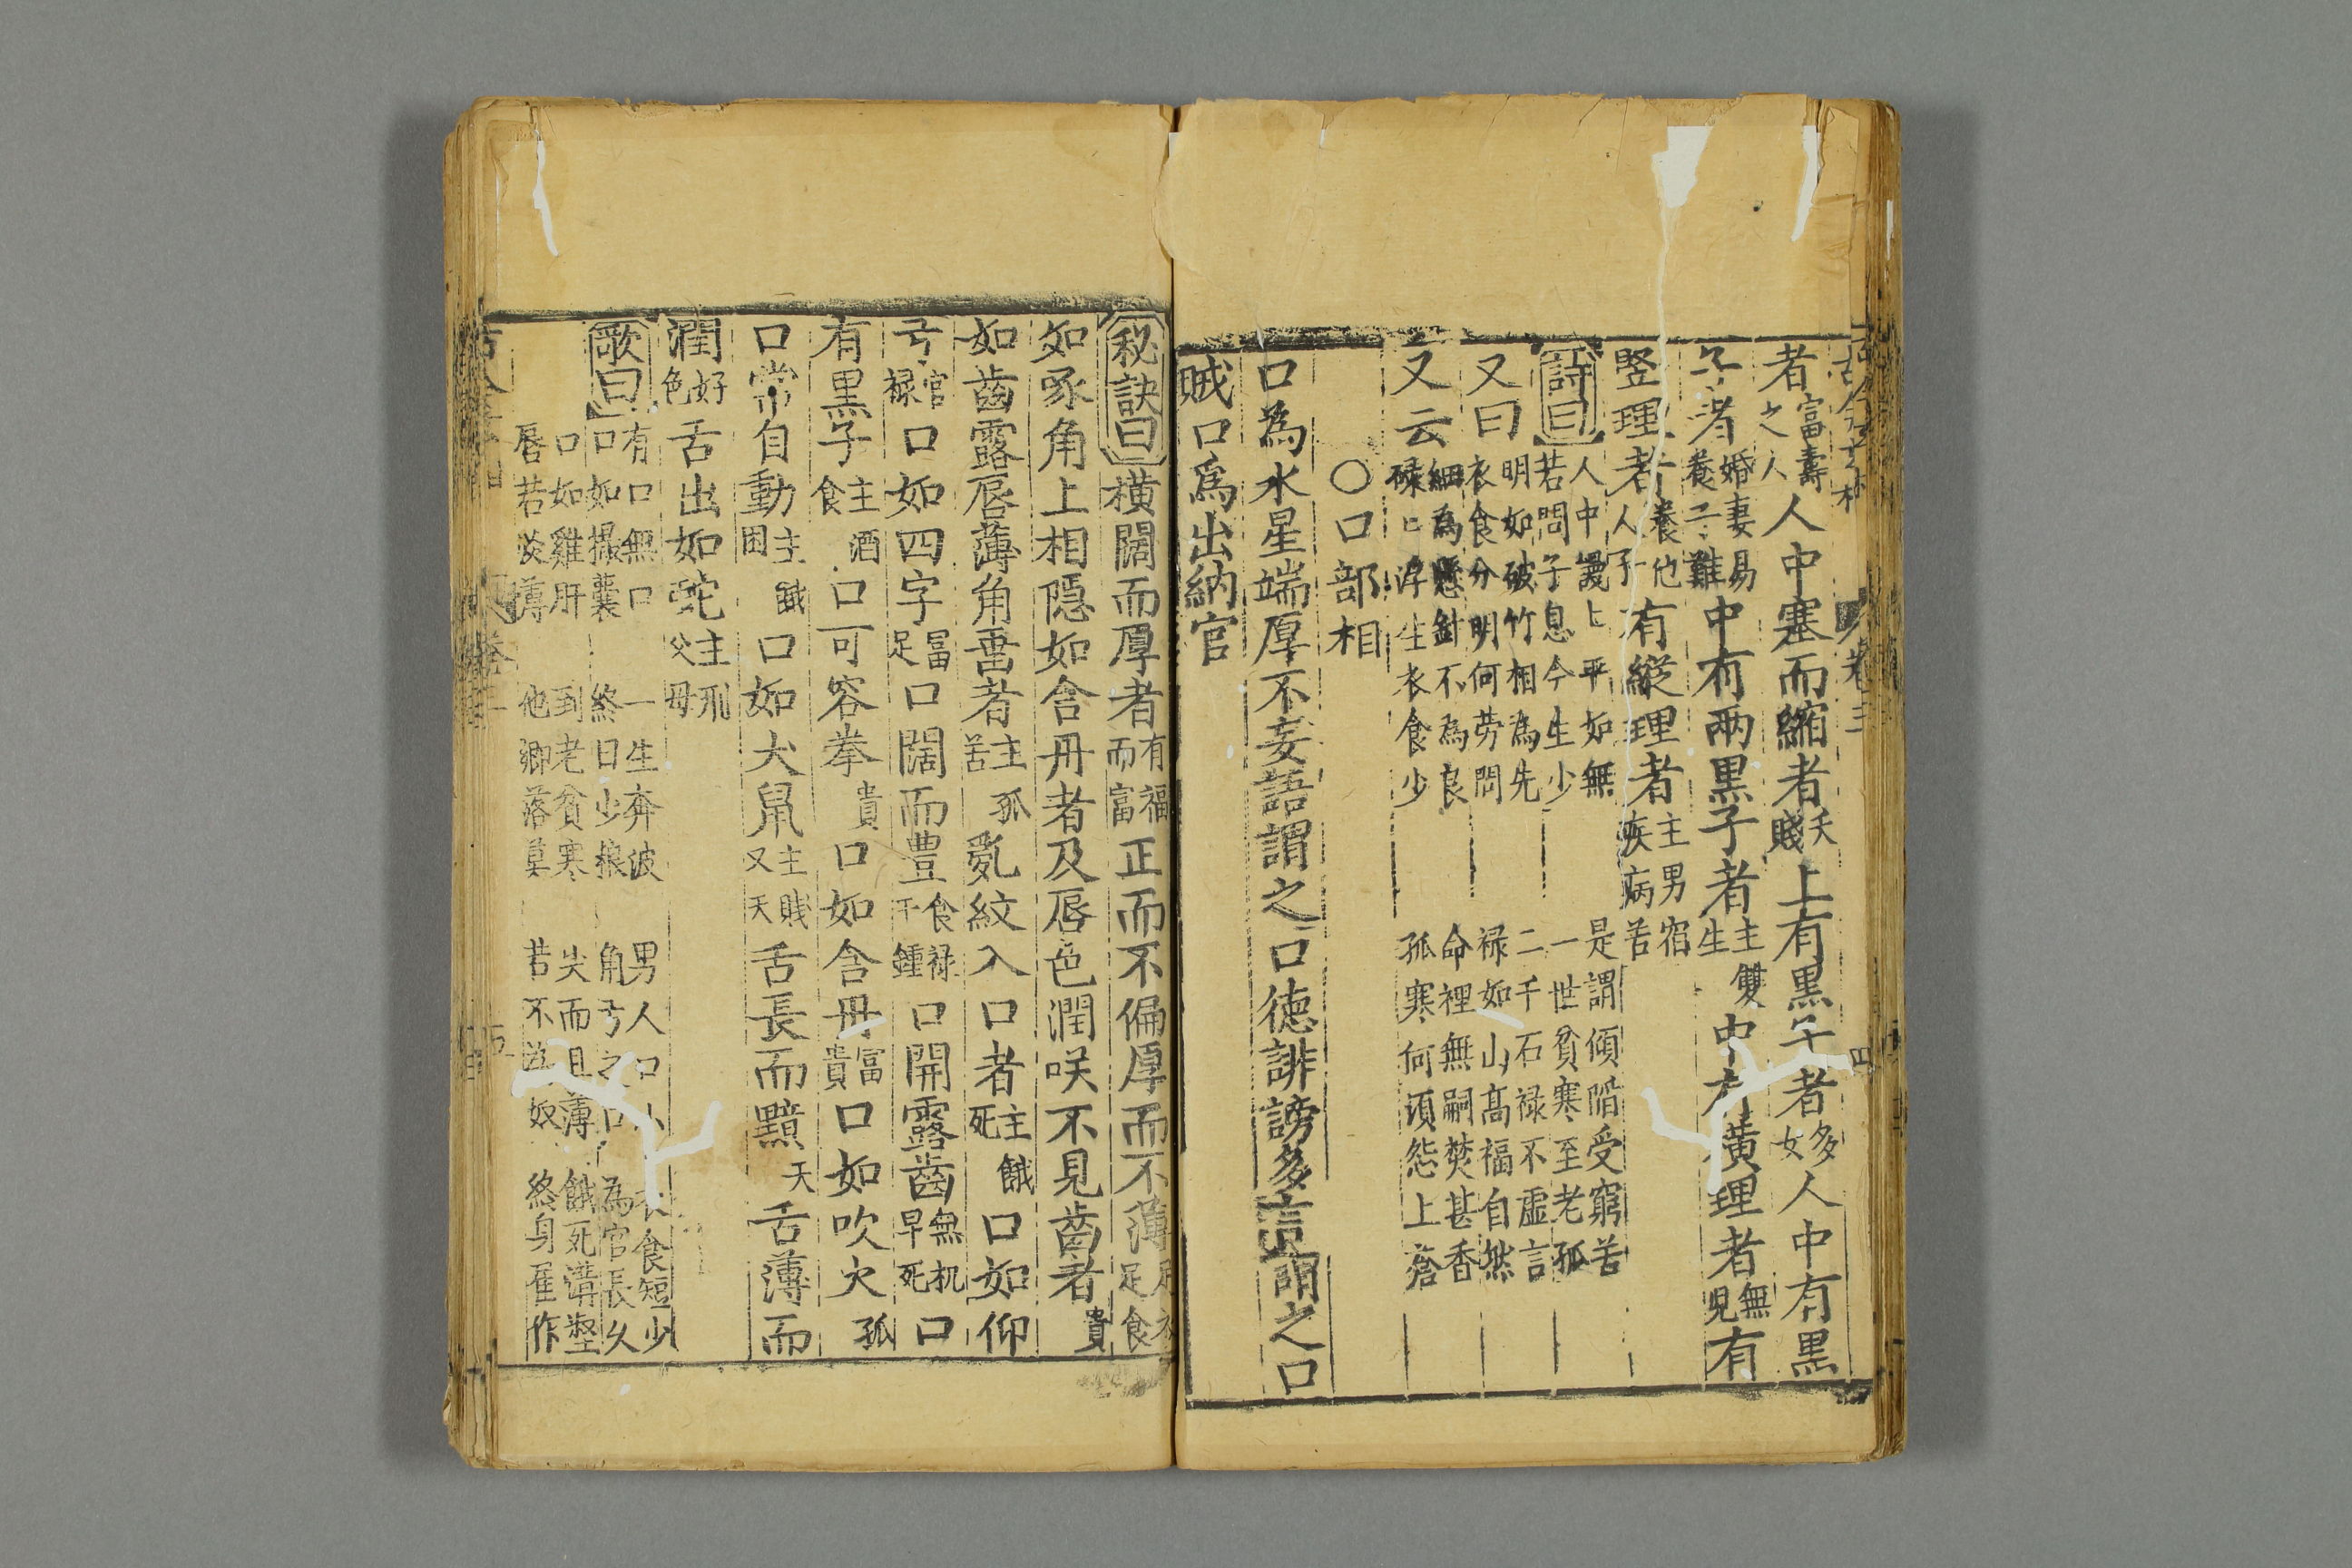 者富壽之人人中塞而縮者夭賤上有黒子者多女人中有黒
子者婚妻易養子難中有兩黒子者主雙生中有橫理者無児有
竪理者養他人子有縱理者主男宿疾病苦
詩曰人中謾〻平如無是謂傾陷受窮苦
若問子息今生少一世貧寒至老孤
又曰明如破竹相為先二千石禄不虛言
衣食分明何劳問禄如山髙福自然
又云細為懸針不為良命裡無嗣焚甚香
碌〻浮生衣食少孤寒何湏怨上蒼
○口部相
口為水星端厚不妄語謂之口徳誹謗多言謂之口
賊口爲出納官
秘訣曰橫闊而厚者有福而富正而不偏厚而不薄足衣足食
如豕角上相隠如含丹者及唇色潤咲不見齒者貴
如齒露唇薄角畨者主孤苦亂紋入口者主餓死口如仰
弓官禄口如四字冨足口闊而豊食禄千鍾口開露齒無机早死口
有黒子主酒食口可容拳貴口如含丹冨貴口如吹火孤
口常自動主餓困口如犬鼠主賤又夭舌長而黷夭舌薄而
潤好色舌出如蛇主刑父母
歌曰有口無口一生奔波男人口小衣食短少
口如撮囊終日少粮角弓之口為官長久
口如雞肝到老貧寒尖而且薄餓死溝壑
唇若淡薄他鄉落莫若不為奴終身雇作